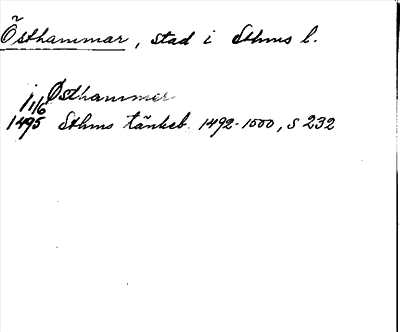 Östhammar, stad i Sthms l.
i Østhammer
1/6
1495 Sthms tänkeb. 1492-1500, s 232